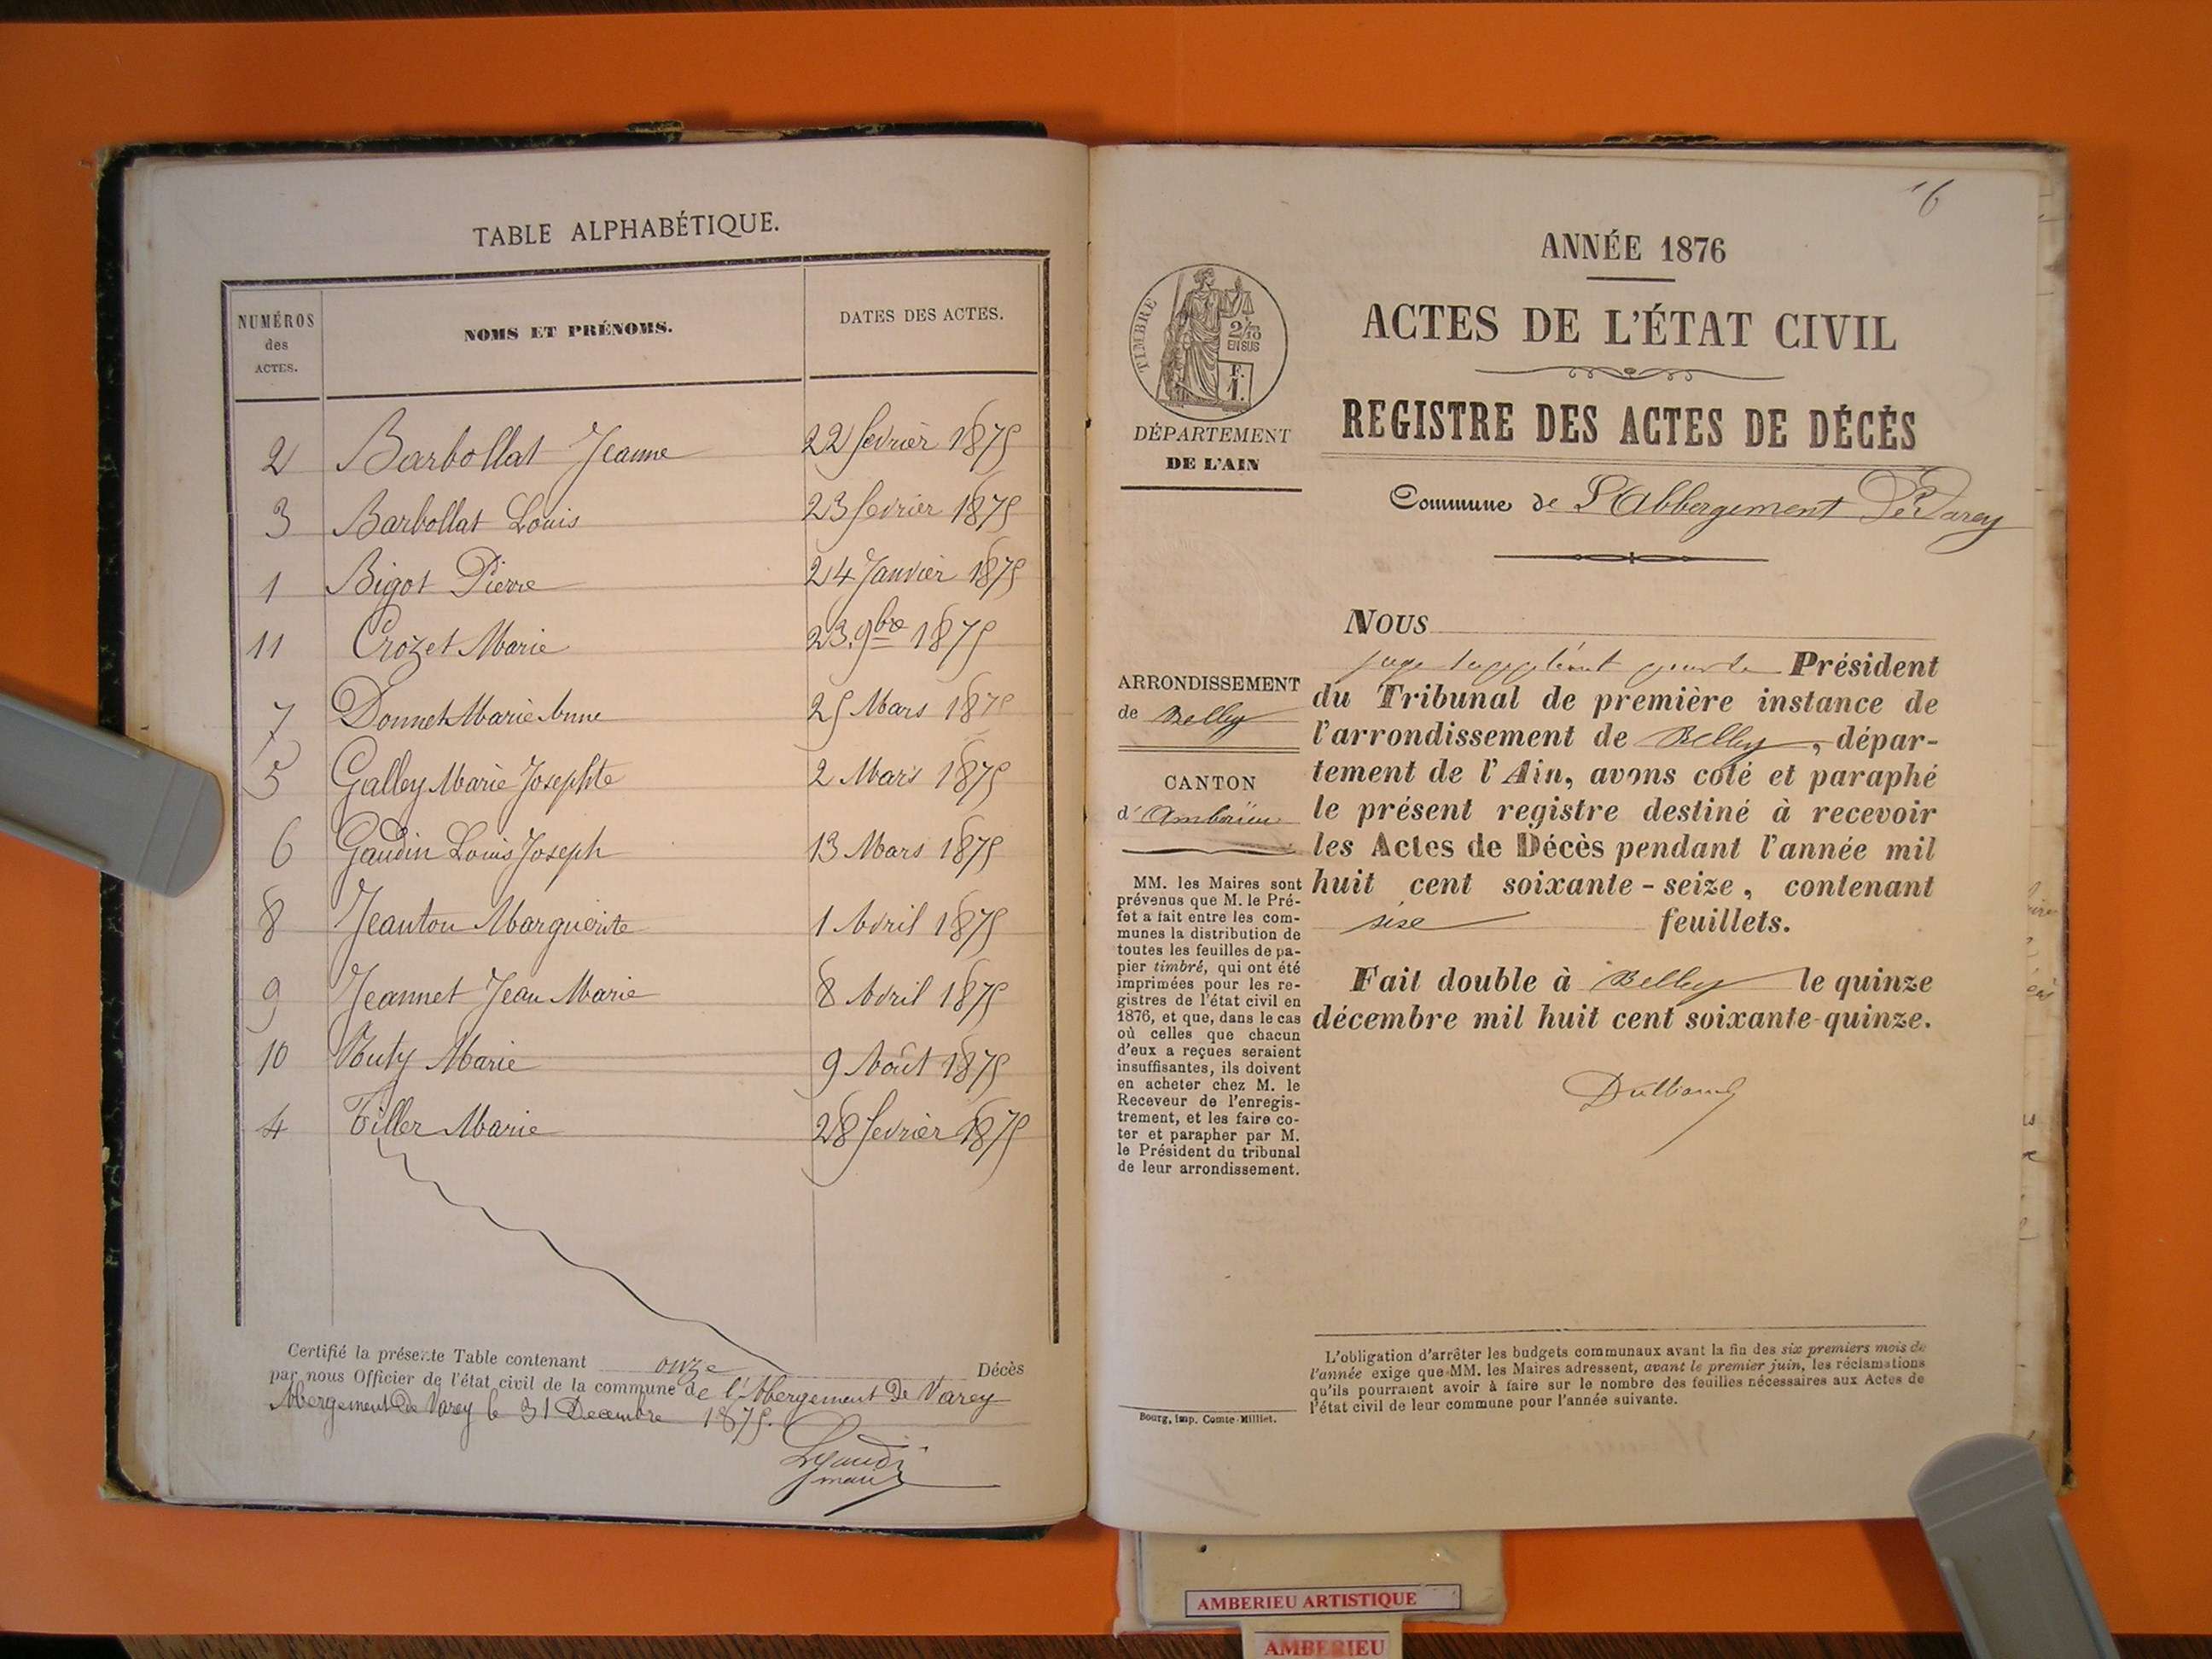 TABLE ALPHABÉTIQUE.
NUMÉROS
des
ACTES.
NOMS ET PRÉNOMS.
DATES DES ACTES.
2 Barbollat Jeanne 22 fevrier 1875
3 Barbollat Louis 23 fevrier 1875
1 Bigot Pierre 24 Janvier 1875
11 Crozet Marie 23 9bre 1875
7 Donnet Marie Anne 25 Mars 1875
5 Galley Marie Josephte 2 Mars 1875
6 Gaudin Louis Joseph 13 Mars 1875
8 Jeanton Marguerite 1 Avril 1875
9 Jeannet Jean Marie 8 Avril 1875
10 Marie 9 Août 1875
4 Tiller Marie 28 fevrier 1875
Certifié la présente Table contenant onze Décès
par nous Officier de l'état civil de la commune de l'Abergement De Varey
Abergement De Varey le 31 Decembre 1875.
maire
16
ANNÉE 1876
ACTES DE L'ÉTAT CIVIL
REGISTRE DES ACTES DE DÉCÈS
Commune de L'Abbergement De Varey
TIMBRE
2/10
EN SUS
F.
1.
DÉPARTEMENT
DE L'AIN
ARRONDISSEMENT
de Belley
CANTON
d'Ambérieu
MM. les Maires sont
prévenus que M. le Pré-
fet a fait entre les com-
munes la distribution de
toutes les feuilles de pa-
pier timbré, qui ont été
imprimées pour les re-
gistres de l'état civil en
1876, et que, dans le cas
où celles que chacun
d'eux a reçues seraient
insuffisantes, ils doivent
en acheter chez M. le
Receveur de l'enregis-
trement, et les faire co-
ter et parapher par M.
le Président du tribunal
de leur arrondissement.
Bourg, imp. Comte-Milliet.
NOUS
juge suppléant pour le Président
du Tribunal de première instance de
l'arrondissement de Belley, dépar-
tement de l'Ain, avons coté et paraphé
le présent registre destiné à recevoir
les Actes de Décès pendant l'année mil
huit cent soixante-seize, contenant
sise feuillets.
Fait double à Belley le quinze
décembre mil huit cent soixante-quinze.
L'obligation d'arrêter les budgets communaux avant la fin des six premiers mois de
l'année exige que MM. les Maires adressent, avant le premier juin, les réclamations
qu'ils pourraient avoir à faire sur le nombre des feuilles nécessaires aux Actes de
l'état civil de leur commune pour l'année suivante.
AMBERIEU ARTISTIQUE
AMBERIEU